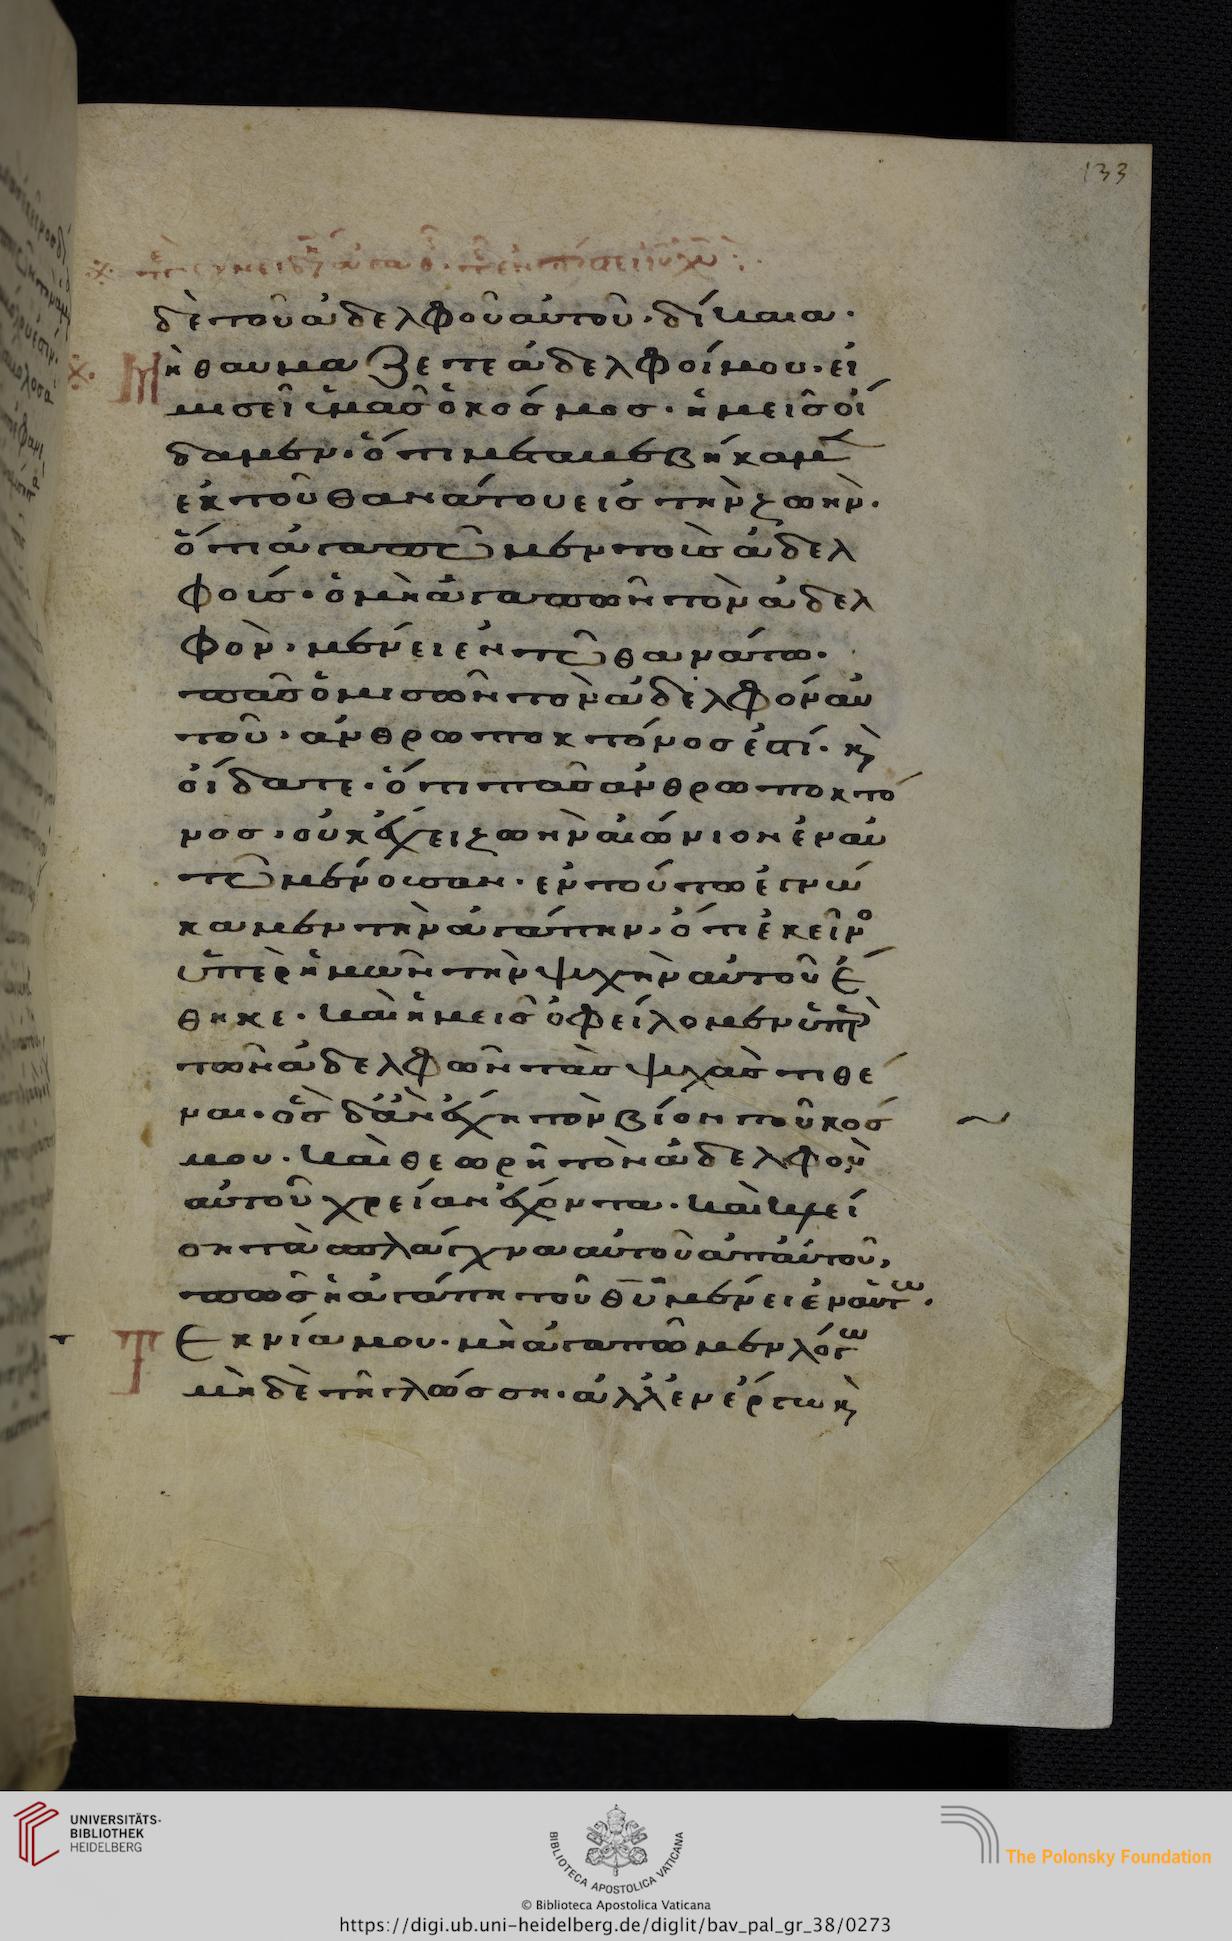 133
δὲ τοῦ ἀδελφοῦ αὐτοῦ· δίκαια·
Μὴ θαυμάζετε ἀδελφοί μου· εἰ
μισεῖ ὑμᾶς ὁ κόσμος· ἡμεῖς οἴ
δαμεν· ὅτι μεταβεβήκαμεν
ἐκ τοῦ θανάτου εἰς τὴν ζωὴν·
ὅτι ἀγαπῶμεν τοὺς ἀδελ
φούς· ὁ μὴ ἀγαπῶν τὸν ἀδελ
φὸν· μένει ἐν τῶ θανάτω·
πᾶς ὁ μισῶν τὸν ἀδελφὸν αὐ
τοῦ· ἀνθρωποκτόνος ἐστί· κὶ
οἴδατε· ὅτι πᾶς ἀνθρωποκτό
νος· οὐκ ἔχει ζωὴν αἰώνιον ἐν αὐ
τῶ μένουσαν· ἐν τούτω ἐγνώ
καμεν τὴν ἀγάπην· ὅτι ἐκεῖνο
ὑπὲρ ἡμῶν τὴν ψυχὴν αὐτοῦ ἔ
θηκε· καὶ ἡμεῖς ὀφείλομεν ὑπὲρ
τῶν ἀδελφῶν τὰς ψυχὰς τιθέ
ναι· ὃς δ' ἂν ἔχη τὸν βίον τοῦ κόσ
μου· καὶ θεωρῆ τὸν ἀδελφὸν
αὐτοῦ χρείαν ἔχοντα· καὶ κλεί
ση τὰ σπλάγχνα αὐτοῦ ἀπ' αὐτοῦ,
πῶς ἡ ἀγάπη τοῦ θῦ μένει ἐν αὐτω·
Τεκνία μου· μὴ ἀγαπῶμεν λόγω
μηδὲ τῆ γλώσση· ἀλλ' ἐν ἔργω κὶ
UNIVERSITÄTS-
BIBLIOTHEK
HEIDELBERG
BIBLIOTECA APOSTOLICA VATICANA
The Polonsky Foundation
© Biblioteca Apostolica Vaticana
https://digi.ub.uni-heidelberg.de/diglit/bav_pal_gr_38/0273